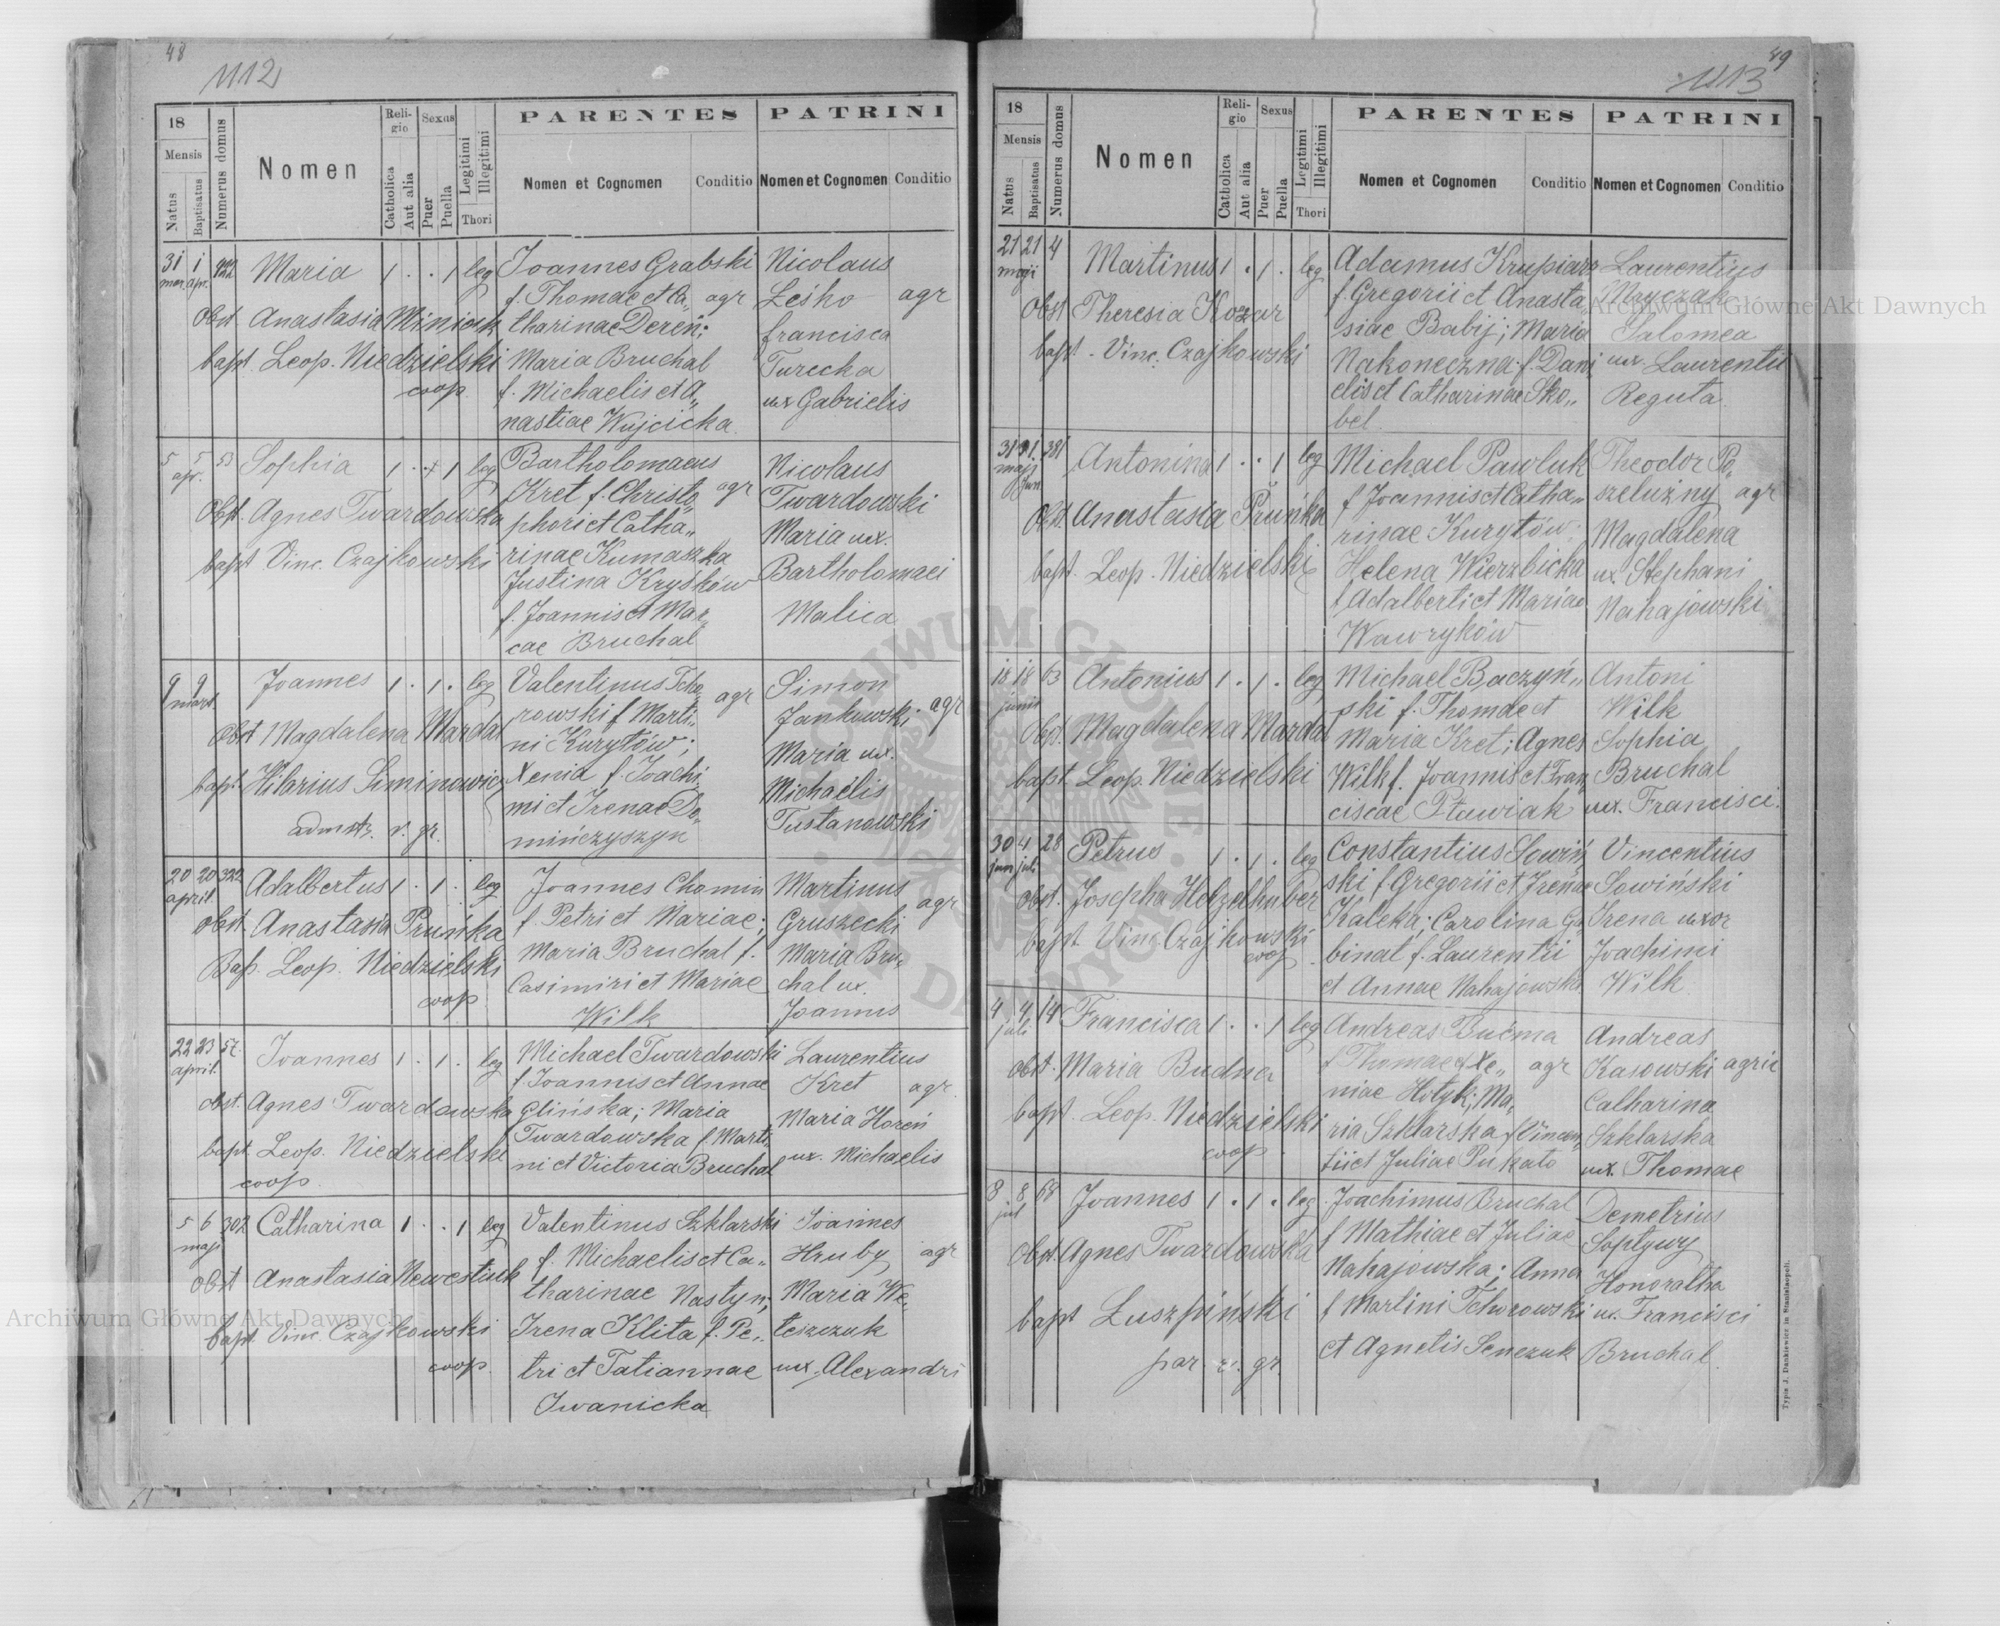 48
1112
18
Mensis
Natus
Baptisatus
Numerus domus
Nomen
Religio
Catholica
Aut alia
Sexus
Puer
Puella
Legitimi
Illegitimi
Thori
PARENTES
Nomen et Cognomen
Conditio
PATRINI
Nomen et Cognomen
Conditio
31 mar. 1 apr. Maria 1 . . 1 leg
Obst Anastasia
bapt Leop. Niedzielski
coop
Joannes Grabski
f. Thomae et Ca„ agr
tharinae Dereń;
Maria Bruchal
f. Michaelis et A„
nastiae Wujcicka.
Nicolaus
Leśko agr
francisca
Turecka
ux Gabrielis
5 5 apr. 53 Sophia 1 . + 1 leg
Obst. Agnes Twardowska
bapt Vinc. Czajkowski
Bartholomaeus
Kret f. Christo„ agr
phori et Catha„
rinae Kumaszka
Justina Kryśków
f. Joannis et Mar„
cae Bruchal
Nicolaus
Twardowski
Maria ux.
Bartholomaei
Malica
9 9 mart. Joannes 1 . 1 . leg
Obst Magdalena Marda
bapt. Hilarius Siminowicz
admstr. r. gr.
Valentinus Tcho„ agr
rowski f Marti„
ni Kurytów;
Xenia f. Joachi„
mi et Irenae Do„
mińczyszyn
Simon
Jankowski agr
Maria ux.
Michaelis
Tustanowski
20 20 april Adalbertus 1 . 1 . leg
obst. Anastasia Pruńka
Bap. Leop. Niedzielski
coop
Joannes Chomin
f. Petri et Mariae;
Maria Bruchal f.
Casimiri et Mariae
Wilk
Martinus
Gruszecki agr
Maria Bru„
chal ux.
Joannis
22 23 april. 57. Joannes 1 . 1 . leg
obst. Agnes Twardowska
bapt. Leop. Niedzielski
coop.
Michael Twardowski
f. Joannis et Annae
Glińska; Maria
Twardowska f. Marti„
ni et Victoria Bruchal
Laurentius
Kret agr.
Maria Horeń
ux. Michaelis
5 6 maji 302 Catharina 1 . . 1 leg
Obst Anastasia Newestiuk
bapt. Vinc. Czajkowski
coop.
Valentinus Szklarski
f. Michaelis et Ca„
tharinae Nastyn;
Irena Klita f. Pe„
tri et Tatiannae
Iwanicka
Joannes
Hruby agr
Maria We„
teszczuk
ux. Alexandri
49
1113
18
Mensis
Natus
Baptisatus
Numerus domus
Nomen
Religio
Catholica
Aut alia
Sexus
Puer
Puella
Legitimi
Illegitimi
Thori
PARENTES
Nomen et Cognomen
Conditio
PATRINI
Nomen et Cognomen
Conditio
21 21 maji 4 Martinus 1 . 1 . leg
Obst Theresia Kozar
bapt. Vinc. Czajkowski
Adamus Krupiarz
f. Gregorii et Anasta„
siae Babij; Maria
Nakoneczna f. Dani„
elis et Catharinae Sko„
bel.
Laurentius
Myczak
Salomea
ux. Laurentii
Reguta
31 maji 1. jun 381 Antonina 1 . . 1 leg
Obst Anastasia Pruńka
bapt. Leop. Niedzielski
Michael Pawluk
f Joannis et Catha„
rinae Kurytów;
Helena Wierzbicka
f Adalberti et Mariae
Wawryków
Theodor Po„
szelużny agr
Magdalena
ux. Stephani
Nahajowski
18 18 junii 63 Antonius 1 . 1 . leg
Obst. Magdalena Marda
bapt. Leop. Niedzielski
Michael Baczyń„
ski f. Thomae et
Maria Kret; Agnes
Wilk f. Joannis et Fran„
ciscae Pławiak
Antoni
Wilk
Sophia
Bruchal
ux. Francisci.
30 jun 4 juli 28 Petrus 1 . 1 . leg
obst. Josepha Helzelhuber
bapt. Vinc. Czajkowski
coop
Constantius Sowiń„
ski f Gregorii et Irenae
Kaleka; Carolina Ga„
binat f. Laurentii
et Annae Nahajowska
Vincentius
Sowiński
Irena uxor
Joachimi
Wilk
4 4 juli 14 Francisca 1 . . 1 leg
obst. Maria Budna
bapt. Leop. Niedzielski
coop
Andreas Bucma
f Thomae et Xe„ agr
niae Hotyk; Ma„
ria Szklarska f Vincen„
tii et Juliae Pukato
Andreas
Kasowski agric
Catharina
Szklarska
ux. Thomae
8 8 jul 68 Joannes 1 . 1 . leg
Obst. Agnes Twardowska
bapt Luszpiński
par. r. gr.
Joachimus Bruchal
f Mathiae et Juliae
Nahajowska; Anna
f Martini Tchorowski
et Agnetis Senczuk
Demetrius
Soptywy
Honoratha
ux. Francisci
Bruchal.
Typis J. Dankiewicz in Stanislaopoli.
Archiwum Główne Akt Dawnych
Archiwum Główne Akt Dawnych
ARCHIWUM GŁÓWNE AKT DAWNYCH